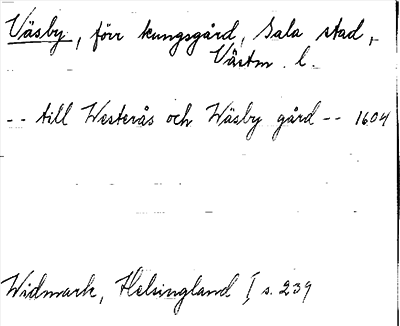 Väsby, förr kungsgård, Sala stad,
Västm. l.
-- till Westerås och Wäsby gård -- 1604
Widmark, Helsingland I s. 239